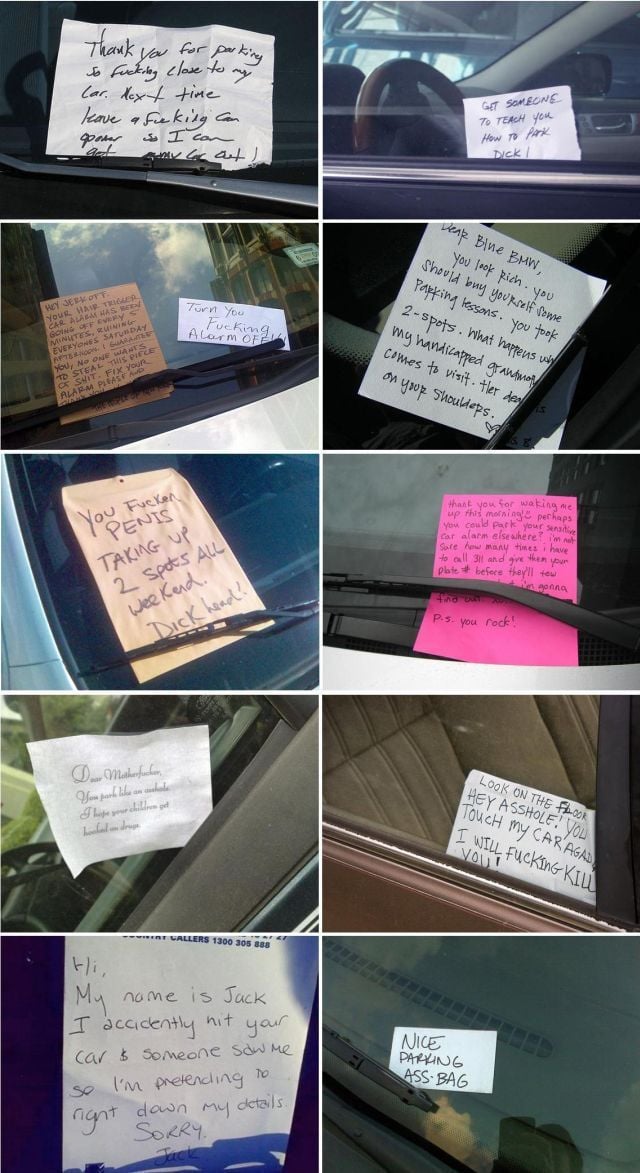 Thank you for parking
so fucking close to my
car. Next time
leave a fucking can
opener so I can
get my car out!
GET SOMEONE
TO TEACH YOU
HOW TO PARK
DICK!
HEY JERKOFF.
YOUR HAIR TRIGGER
CAR ALARM HAS BEEN
GOING OFF EVERY 5
MINUTES, RUINING
EVERYONES SATURDAY
AFTERNOON. I GUARANTEE
YOU, NO ONE WANTS
TO STEAL THIS PIECE
OF SHIT. FIX YOUR
ALARM PLEASE AND
Turn You
Fucking
Alarm OFF!
Dear Blue BMW,
you look rich. you
should buy yourself some
parking lessons. you took
2-spots. what happens wh
my handicapped grandmo
comes to visit. Her dea
is
on your shoulders.
You Fucken
PENIS
TAKING UP
2 spots ALL
weekend.
Dick head!
thank you for waking me
up this morning! perhaps
you could park your sensitive
car alarm elsewhere? i'm not
sure how many times i have
to call 311 and give them your
plate # before they'll tow
i'm gonna
find out.
p.s. you rock!
Dear Motherfucker,
You park like an asshole.
I hope your children get
hooked on drugs.
LOOK ON THE FLOOR
HEY ASSHOLE! YOU
TOUCH MY CAR AGAIN
I WILL FUCKING KILL
YOU!
COUNTRY CALLERS 1300 305 888
Hi,
My name is Jack
I accidently hit your
car & someone saw me
so I'm pretending to
right down my details.
SORRY.
Jack
NICE
PARKING
ASS-BAG